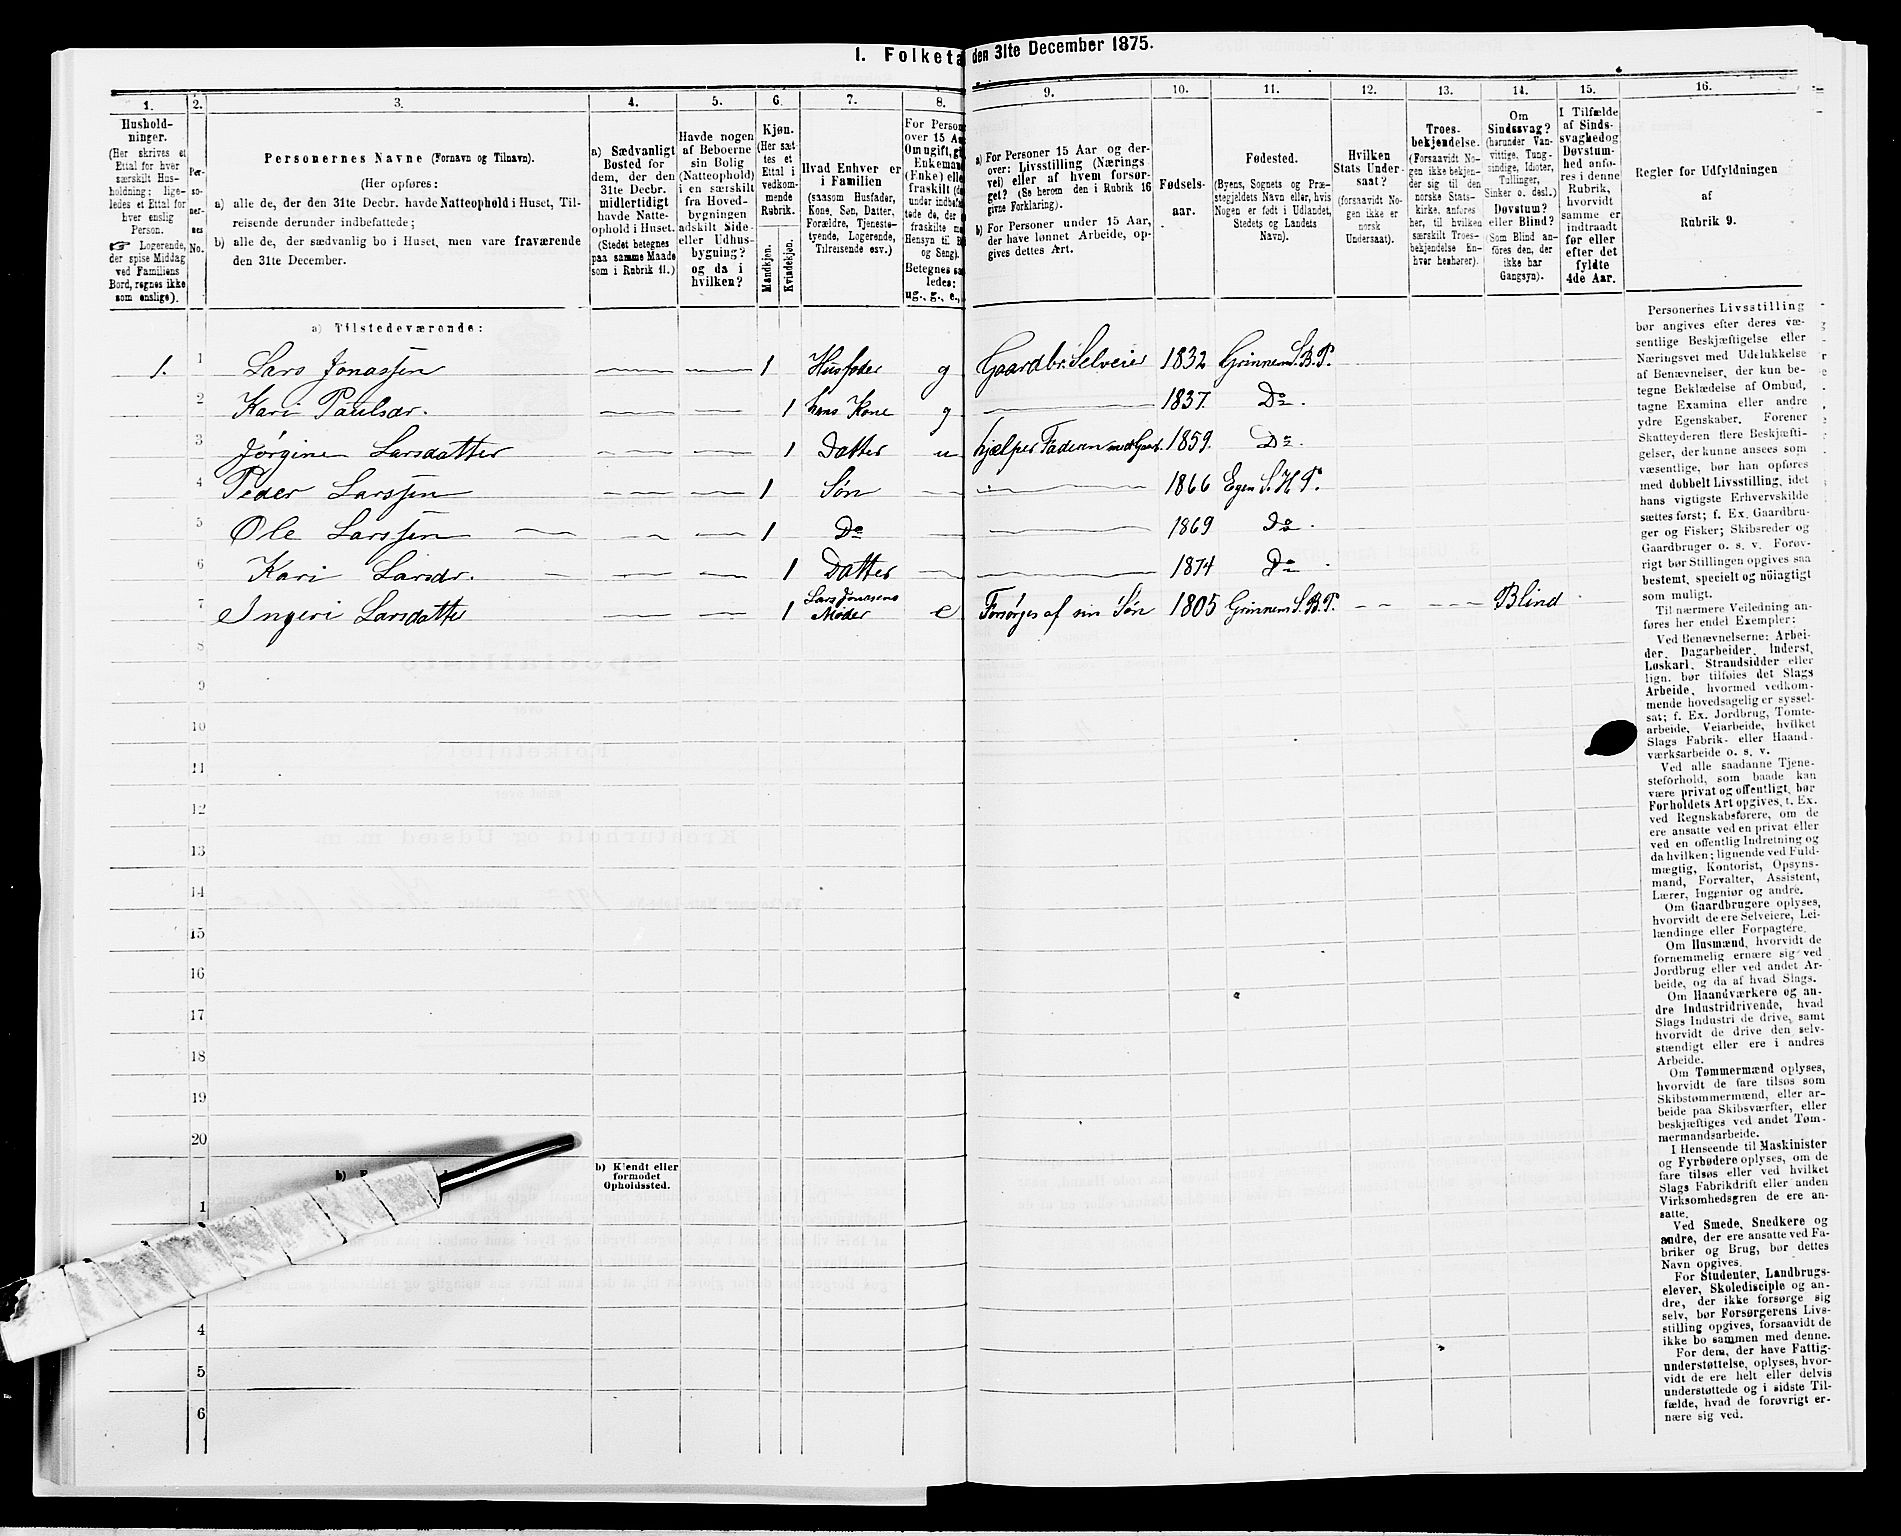 I. Folketæ den 31te December 1875.
1. 2. 3. 4. 5. 6. 7. 8. 9. 10. 11. 12. 13. 14. 15. 16.
Hushold-
ninger.
(Her skrives et
Ettal for hver
særskilt Hus-
holdning; lige-
ledes et Ettal for
hver enslig
Person.
☞ Logerende,
der spise Middag
ved Familiens
Bord, regnes ikke
som enslige).
Per-
so-
ner-
nes
No.
Personernes Navne (Fornavn og Tilnavn).
(Her opføres:
a) alle de, der den 31te Decbr. havde Natteophold i Huset, Til-
reisende derunder indbefattede;
b) alle de, der sædvanlig bo i Huset, men vare fraværende
den 31te December.
a) Sædvanligt
Bosted for
dem, der den
31te Decbr.
midlertidigt
havde Natte-
ophold i Huset.
(Stedet betegnes
paa samme Maade
som i Rubrik 11.)
Havde nogen
af Beboerne
sin Bolig
(Natteophold)
i en særskilt
fra Hoved-
bygningen
adskilt Side-
eller Udhus-
bygning?
og da i
hvilken?
Kjøn.
(Her sæt-
tes et
Ettal i
vedkom-
mende
Rubrik.
Mandkjøn.
Kvindekjøn.
Hvad Enhver er
i Familien
(saasom Husfader,
Kone, Søn, Datter,
Forældre, Tjeneste-
tyende, Logerende,
Tilreisende osv.)
For Person
over 15 Aa
Om ugift, g
Enkema
(Enke) elle
fraskilt (d
under indbefa
tede de, der
fraskilte
Hensyn til B
og Seng).
Betegnes sa
ledes:
ug., g., e.,
a) For Personer 15 Aar og der-
over: Livsstilling (Nærings
vei) eller af hvem forsør-
get? (Se herom den i Rubrik 16
givne Forklaring).
b) For Personer under 15 Aar,
der have lønnet Arbeide, op-
gives dettes Art.
Fødsels-
aar.
Fødested.
(Byens, Sognets og Præ-
stegjeldets Navn eller, hvis
Nogen er født i Udlandet,
Stedets og Landets
Navn).
Hvilken
Stats Under-
saat?
(forsaavidt No-
gen ikke er
norsk
Undersaat).
Troes-
bekjendelse.
(Forsaavidt No-
gen ikke bekjen-
der sig til den
norske Stats-
kirke, anføres
her, til hvilken
særskilt Troes-
bekjendelse En-
hver henhører).
Om
Sindssvag?
(herunder Van-
vittige, Tung-
sindige, Idioter,
Tullinger,
Sinker o. desl.)
Døvstum?
eller Blind?
(Som Blind an-
føres den, der
ikke har
Gangsyn).
I Tilfælde
af Sinds-
svaghed og
Døvstum-
hed anfø-
res i denne
Rubrik,
hvorvidt
samme er
indtraadt
før eller
efter det
fyldte
4de Aar.
Regler for Udfyldningen
af
Rubrik 9.
a) Tilstedeværende:
1. 1 Lars Jonassen 1 Husfader g Gaardbr. Selveier 1832 Grinnem S. B. P.
2 Kari Paulsdr. 1 hans Kone g 1837. Do.
3 Jørgine Larsdatter 1 Datter u hjælper Faderen med Gaard. 1859. Do.
4 Peder Larssen 1 Søn 1866 Egen S. H. P.
5 Ole Larssen 1 Do 1869 Do.
6 Kari Larsdr. 1 Datter 1874 Do.
7 Ingeri Larsdatter 1 Lars Jonasens Moder e Forsørges af sin Søn 1805 Grinnem S. B. P. Blind
8
9
10
11
12
13
14
15
16
17
18
19
20
b)
b) Kjendt eller
formodet
Opholdssted.
1
4
5
6
Personernes Livsstilling
bør angives efter deres væ-
sentlige Beskjæftigelse eller
Næringsvei med Udelukkelse
af Benævnelser, der kun be-
tegne Beklædelse af Ombud,
tagne Examina eller andre
ydre Egenskaber. Forener
Skatteyderen flere Beskjæfti-
gelser, der kunne ansees som
væsentlige, bør han opføres
med dobbelt Livsstilling, idet
hans vigtigste Erhvervskilde
sættes først; f. Ex. Gaardbru-
ger og Fisker; Skibsreder og
Gaardbruger o. s. v. Forøv-
rigt bør Stillingen opgives saa
bestemt, specielt og nöiagtigt
som muligt.
Til nærmere Veiledning an-
føres her endel Exempler:
Ved Benævnelserne: Arbei-
der, Dagarbeider, Inderst,
Løskarl, Strandsidder eller
lign. bør tilføies det Slags
Arbeide, hvormed vedkom-
mende hovedsagelig er syssel-
sat; f. Ex. Jordbrug, Tomte-
arbeide, Veiarbeide, hvilket
Slags Fabrik- eller Haand-
værksarbeide o. s. v.
Ved alle saadanne Tjene-
steforhold, som baade kan
være privat og offentligt, bør
Forholdets Art opgives, t. Ex.
ved Regnskabsførere, om de
ere ansatte ved en privat eller
ved en offentlig Indretning og
da hvilken; lignende ved Fuld-
mægtig, Kontorist, Opsyns-
mand, Forvalter, Assistent,
Lærer, Ingeniør og andre.
Om Gaardbrugere oplyses,
hvorvidt de ere Selveiere, Lei-
lændinge eller Forpagtere.
Om Husmænd, hvorvidt de
fornemmelig ernære sig ved
Jordbrug eller ved andet Ar-
beide, og da af hvad Slags.
Om Haandværkere og an-
dre Industridrivende, hvad
Slags Industri de drive, samt
hvorvidt de drive den selv-
stændigt eller ere i andres
Arbeide.
Om Tømmermænd oplyses,
hvorvidt de fare tilsøs som
Skibstømmermænd, eller ar-
beide paa Skibsværfter, eller
beskjæftiges ved andet Tøm-
mermandsarbeide.
I Henseende til Maskinister
og Fyrbødere oplyses, om de
fare tilsøs eller ved hvilket
Slags Fabrikdrift eller anden
Virksomhedsgren de ere an-
satte.
Ved Smede, Snedkere og
andre, der ere ansatte ved Fa-
briker og Brug, bør dettes
Navn opgives.
For Studenter, Landbrugs-
elever, Skoledisciple og an-
dre, der ikke forsørge sig
selv, bør Forsørgerens Livs-
stilling opgives, forsaavidt de
ikke bo sammen med denne.
For dem, der have Fattig-
understøttelse, oplyses, hvor-
vidt de ere helt eller delvis
understøttede og i sidste Til-
fælde, hvad de forøvrigt er-
nære sig ved.